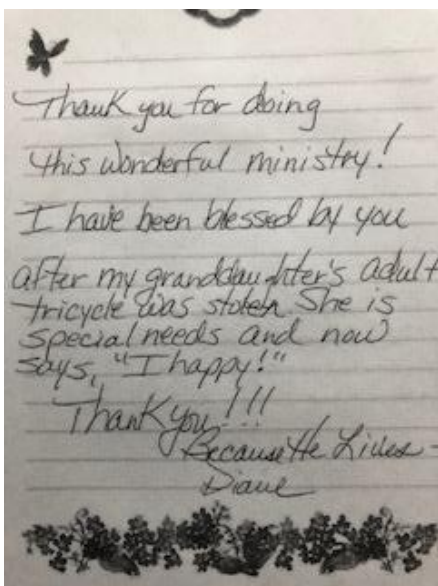 Thank you for doing
this wonderful ministry!
I have been blessed by you
after my granddaughter's adult
tricycle was stolen. She is
special needs and now
says, "I happy!"
Thank you!!!
Because He Lives-
Diane